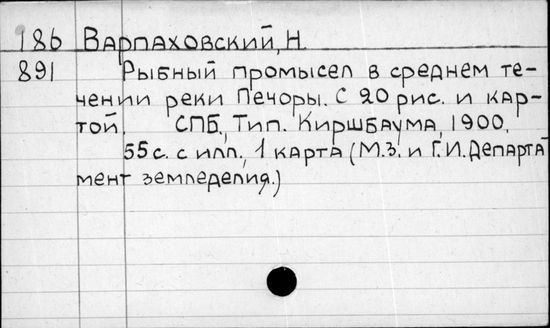 186 Варпаховский, Н.
891 Рыбный промысел в среднем те-
чении реки Печоры. С 20 рис. и кар-
той. СПБ., Тип. Киршбаума, 1900,
55 с. с илл., 1 карта (М.З. и Г.И. Департа
мент земледелия.)